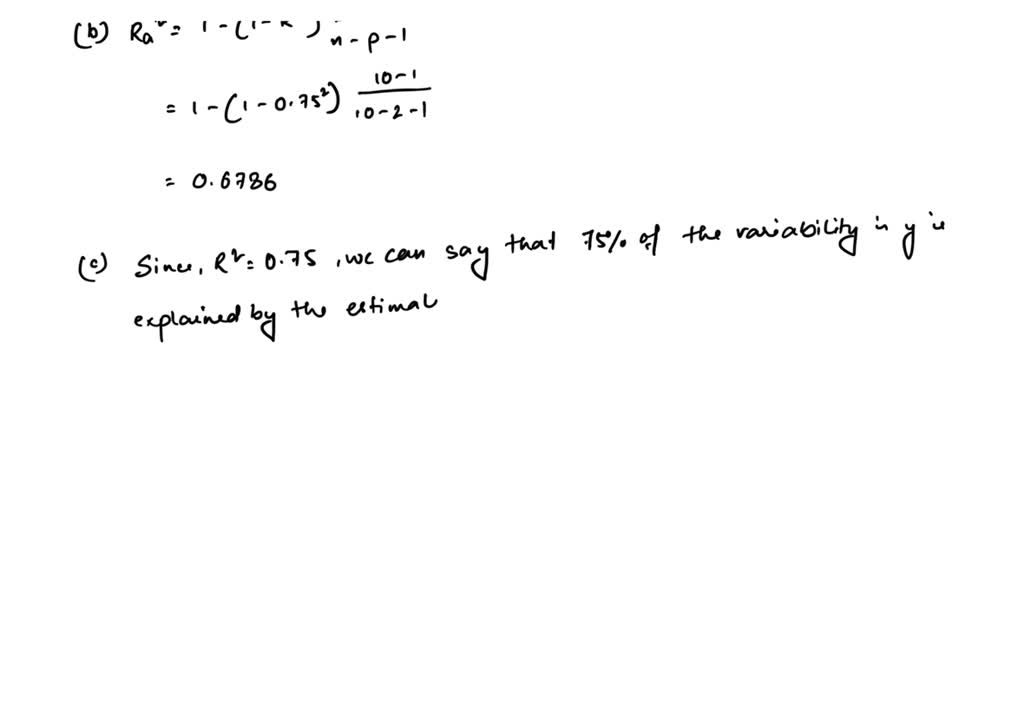 (b) Ra² = 1 - (1 - R ) n - p - 1
= 1 - (1 - 0.75²) 10-1 / 10-2-1
= 0.6786
(c) Since, R² = 0.75, we can say that 75% of the variability in y is
explained by the estimal